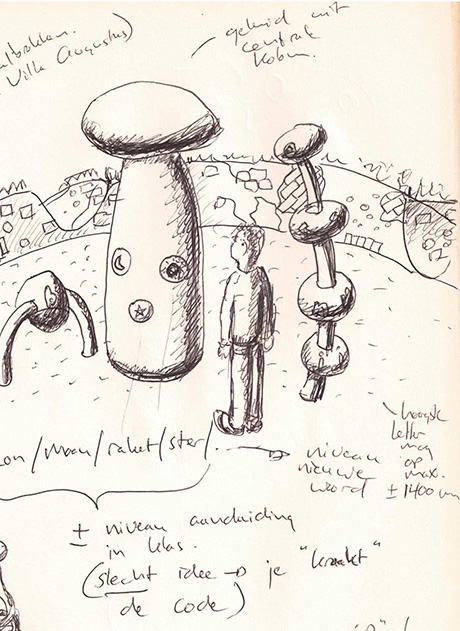 Villa Augustus)
geluid uit
centrale
kolom.
zon/maan/raket/ster/.
niveau
nieuwe
woord
hoogste
letter
mag
op
max.
± 1400
± niveau aanduiding
in klas.
(slecht idee → je "kraakt"
de code)